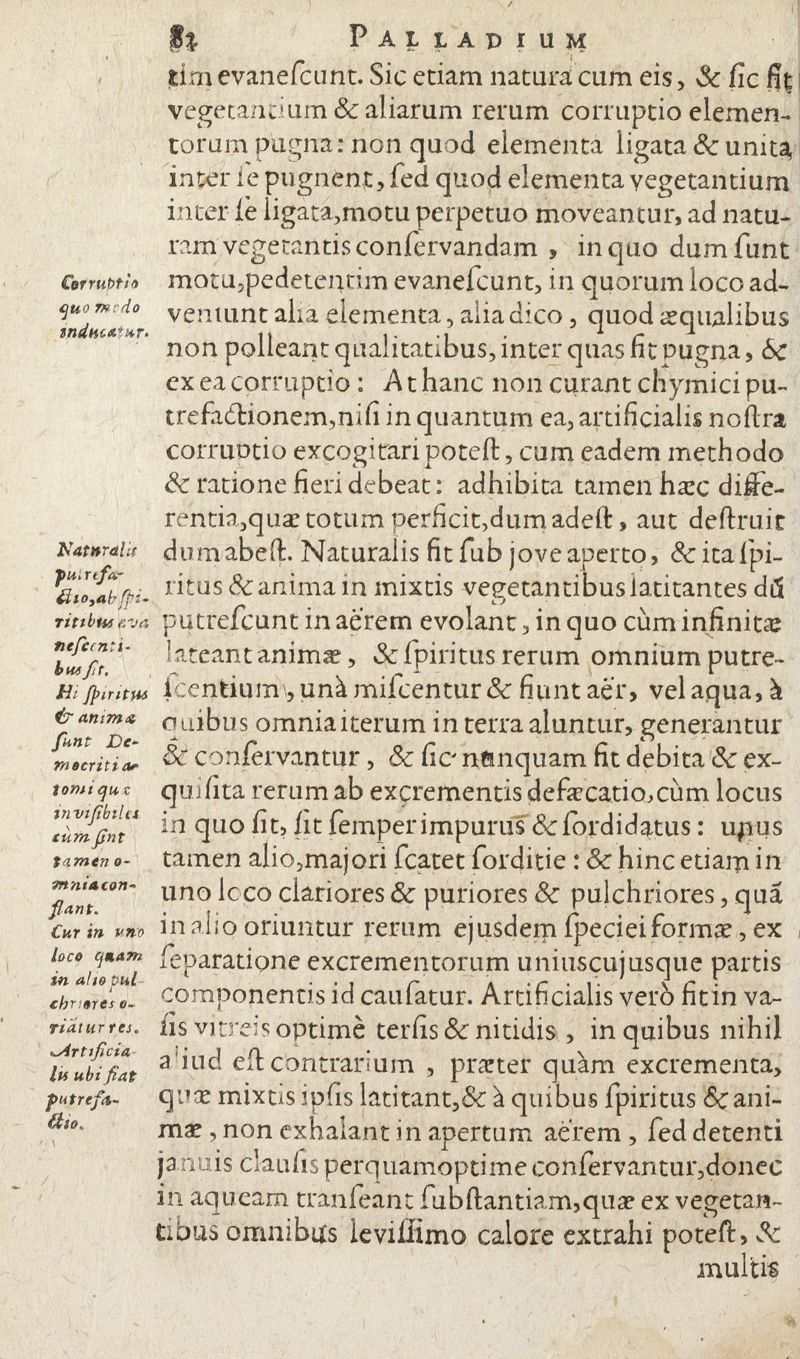 82 PALLADIUM
tim evaneſcunt. Sic etiam natura cum eis, & ſic fit
vegetantium & aliarum rerum corruptio elemen-
torum pugna: non quod elementa ligata & unita
inter ſe pugnent, ſed quod elementa vegetantium
inter ſe ligata, motu perpetuo moveantur, ad natu-
ram vegetantis conſervandam, in quo dum ſunt
motu, pedetentim evaneſcunt, in quorum loco ad-
veniunt alia elementa, alia dico, quod æqualibus
non polleant qualitatibus, inter quas fit pugna, &
ex ea corruptio: At hanc non curant chymici pu-
trefactionem, niſi in quantum ea, artificialis noſtra
corruptio excogitari poteſt, cum eadem methodo
& ratione fieri debeat: adhibita tamen hæc diffe-
rentia, quæ totum perficit, dum adeſt, aut deſtruit
dum abeſt. Naturalis fit ſub jove aperto, & ita ſpi-
ritus & anima in mixtis vegetantibus latitantes dū
putreſcunt in aërem evolant, in quo cùm infinitæ
lateant animæ, & ſpiritus rerum omnium putre-
ſcentium, unà miſcentur & fiunt aër, vel aqua, à
quibus omnia iterum in terra aluntur, generantur
& conſervantur, & ſic nunquam fit debita & ex-
quiſita rerum ab excrementis defæcatio, cùm locus
in quo fit, ſit ſemper impurus & ſordidatus: unus
tamen alio, majori ſcatet ſorditie: & hinc etiam in
uno loco clariores & puriores & pulchriores, quā
in alio oriuntur rerum ejusdem ſpeciei formæ, ex
ſeparatione excrementorum uniuscujusque partis
componentis id cauſatur. Artificialis verò fit in va-
ſis vitreis optimè terſis & nitidis, in quibus nihil
aliud eſt contrarium, præter quàm excrementa,
quæ mixtis ipſis latitant, & à quibus ſpiritus & ani-
mæ, non exhalant in apertum aërem, ſed detenti
januis clauſis perquamoptime conſervantur, donec
in aqueam tranſeant ſubſtantiam, quæ ex vegetan-
tibus omnibus leviſſimo calore extrahi poteſt, &
multis
Corruptio
quo modo
inducatur.
Naturalis
putrefa-
ctio, ab ſpi-
ritibus eva
neſcenti-
bus fit.
Hi ſpiritus
& animæ
ſunt De-
mocriti a-
tomi quæ
inviſibiles
cùm ſint
tamen o-
mnia con-
ſtant.
Cur in uno
loco quam
in alio pul-
chriores o-
riātur res.
Artificia-
lis ubi fiat
putrefa-
ctio.